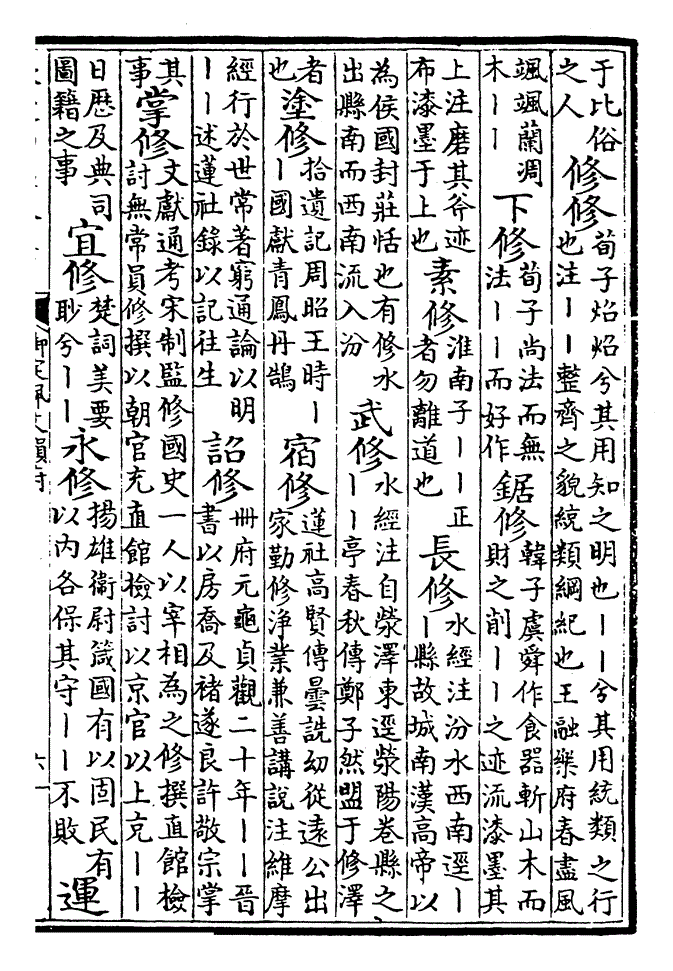 于比俗之人 修修 荀子炤炤兮其用知之明也一一兮其用統類之行也注一一整齊之貌統類綱紀也王融樂府春盡風
颯颯蘭凋木一一 下修 荀子尚法而無法一一而好作 鋸修 韓子虞舜作食器斬山木而財之削一一之迹流漆墨其
上注磨其斧迹布漆墨于上也 素修 淮南子一一正者勿離道也 長修 水經注汾水西南逕一一縣故城南漢高帝以
為侯國封莊恬也有修水出縣南而西南流入汾 武修 水經注自滎澤東逕滎陽卷縣之一一亭春秋傳鄭子然盟于修澤
者也 塗修 拾遺記周昭王時一一國獻青鳳丹鵠 宿修 蓮社高賢傳曇詵幼從遠公出家勤修淨業兼善講說注維摩
經行於世常著窮通論以明一一述蓮社錄以記往生 詔修 冊府元龜貞觀二十年一一晉書以房喬及褚遂良許敬宗掌
其事 掌修 文獻通考宋制監修國史一人以宰相為之修撰直館檢討無常員修撰以朝官充直館檢討以京官以上充一一
日歷及典司圖籍之事 宜修 楚詞美要眇兮一一 永修 揚雄衛尉箴國有以固民有以內各保其守一一不敗 運